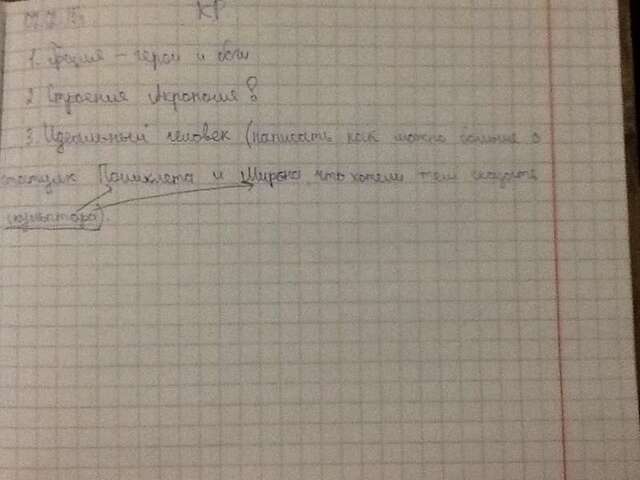 КР
1. Греция - герои и боги
2. Строения Акрополя?
3. Идеальный человек (написать как можно больше о
статуях Поликлета и Мирона что хотели тем сказать
скульптора).